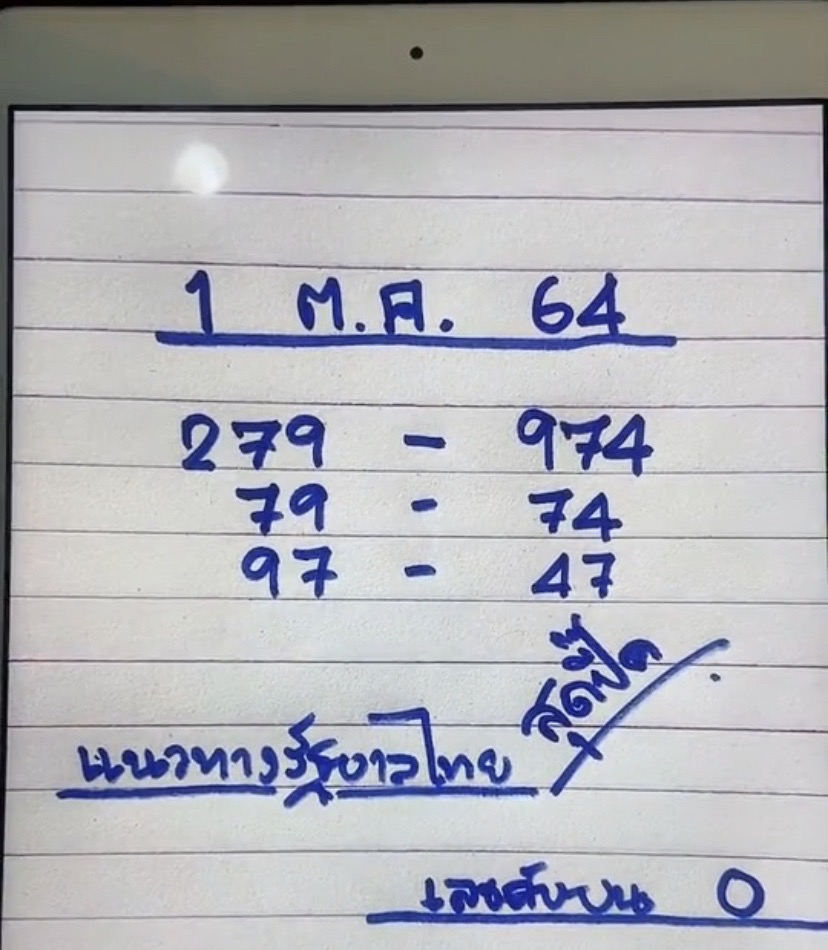 1 ต.ค. 64
279 - 974
79 - 74
97 - 47
สุดปี๊ด
แนวทางรัฐบาลไทย
เลขดับบน 0